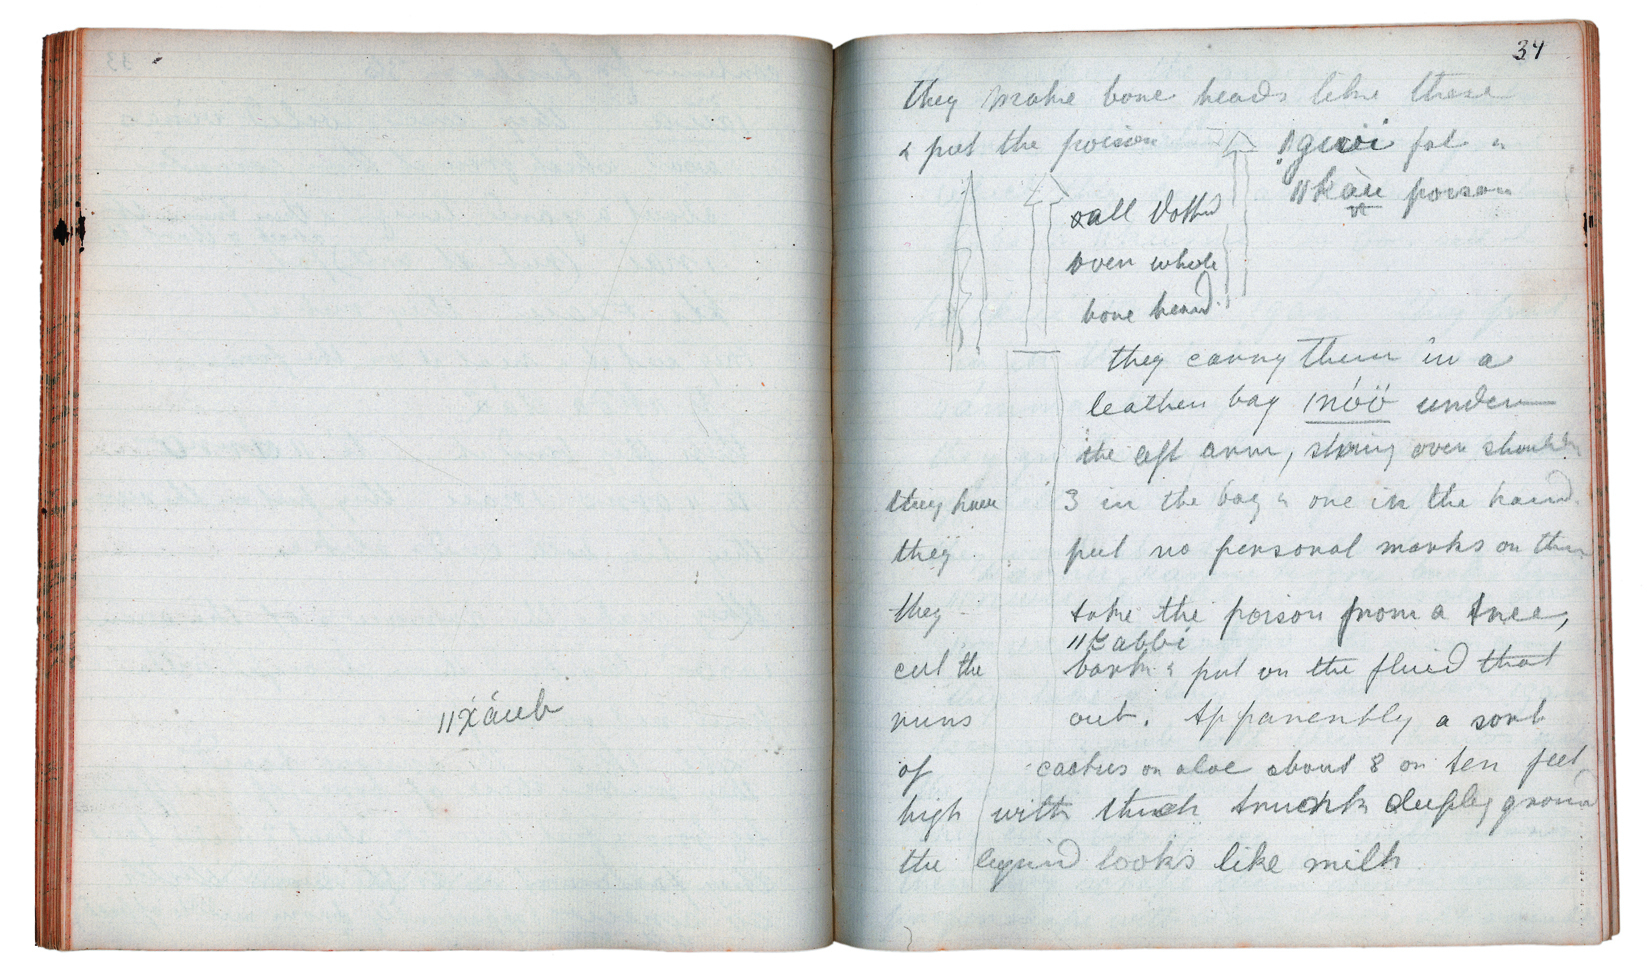 ǁx́áub
34
they make bone heads like these
& put the poison
!guìi fat &
ǁkàu poison
all dotted
over whole
bone head
they carry them in a
leather bag ǀnóö under
the left arm, string over shoulder
they have 3 in the bag & one in the hand
they put no personal marks on them
they take the poison from a tree,
ǁkabbi
cut the bark & put on the fluid that
runs out. Apparently a sort
of cactus or aloe about 8 or ten feet
high with thick trunk deeply
the liquid looks like milk